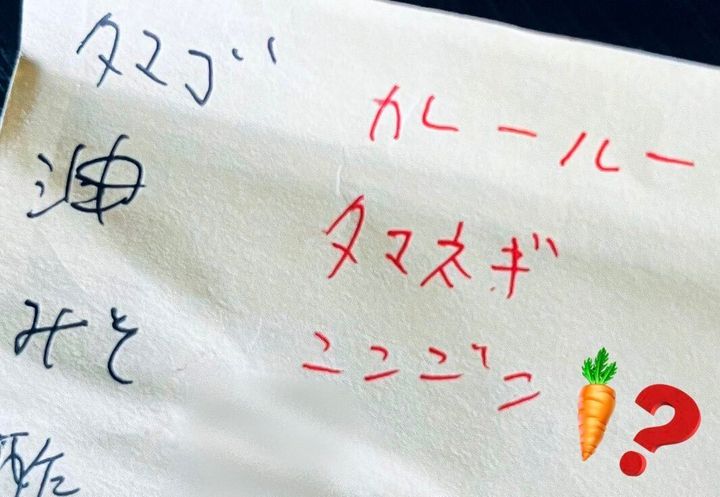 タマゴ
油
みそ
酢
カレールー
タマネギ
ニンジン
?